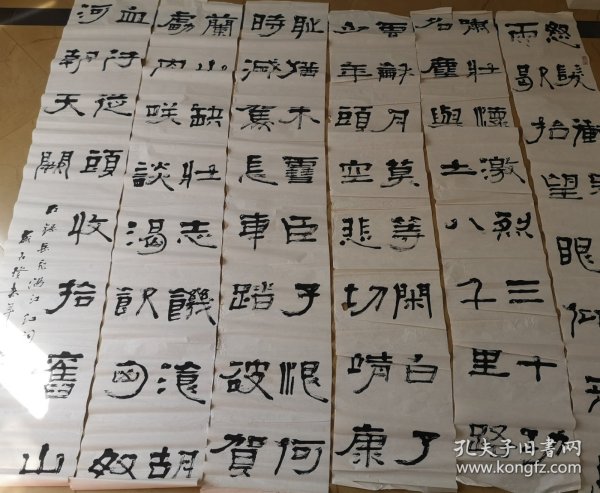 怒髮衝
雨歇抬望眼仰
嘯壯懷激烈三十功
名塵與土八千里路
雲和月莫等閑白了
少年頭空悲切靖康
耻猶未雪臣子恨何
時滅駕長車踏破賀
蘭山缺壯志饑湌胡
虜肉咲談渴飲匈奴
血待從頭收拾舊山
河朝天闕
岳飛滿江紅詞
孔夫子旧书网
www.kongfz.com